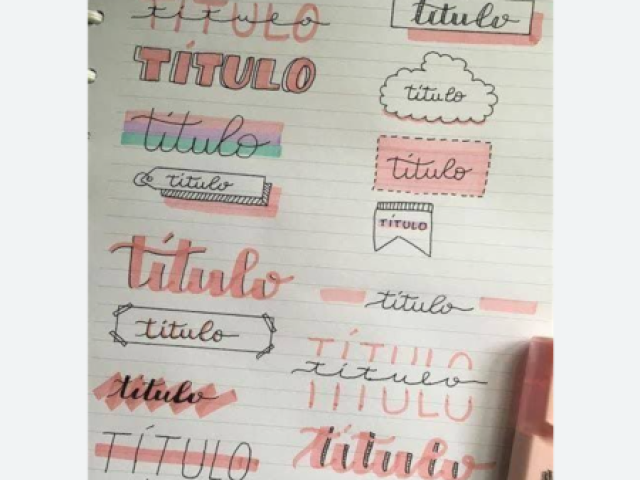 TÍTULO
título
título
TÍTULO
título
título
título
título
TÍTULO
título
título
título
TÍTULO
título
título
TÍTULO
título